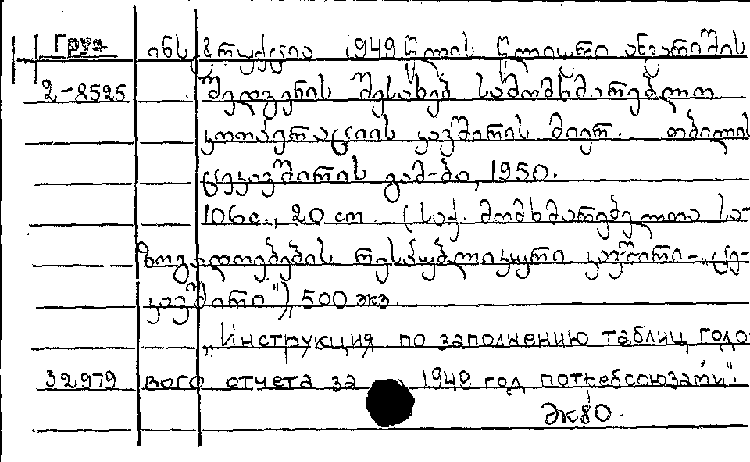 Груз. ინსტრუქცია 1949 წლის წლიური ანგარიშის
2-8525 შედგენის შესახებ სამომხმარებლო
კოოპერაციის კავშირის მიერ. თბილისი
ცეკავშირის გამ-ბა, 1950.
106с., 20 cm. (საქ. მომხმარებელთა სა-
ზოგადოებების რესპუბლიკური კავშირი-„ცე-
კავშირი“), 500 экз.
„Инструкция по заполнению таблиц годо-
32979 вого отчета за 1949 год потребсоюзами".